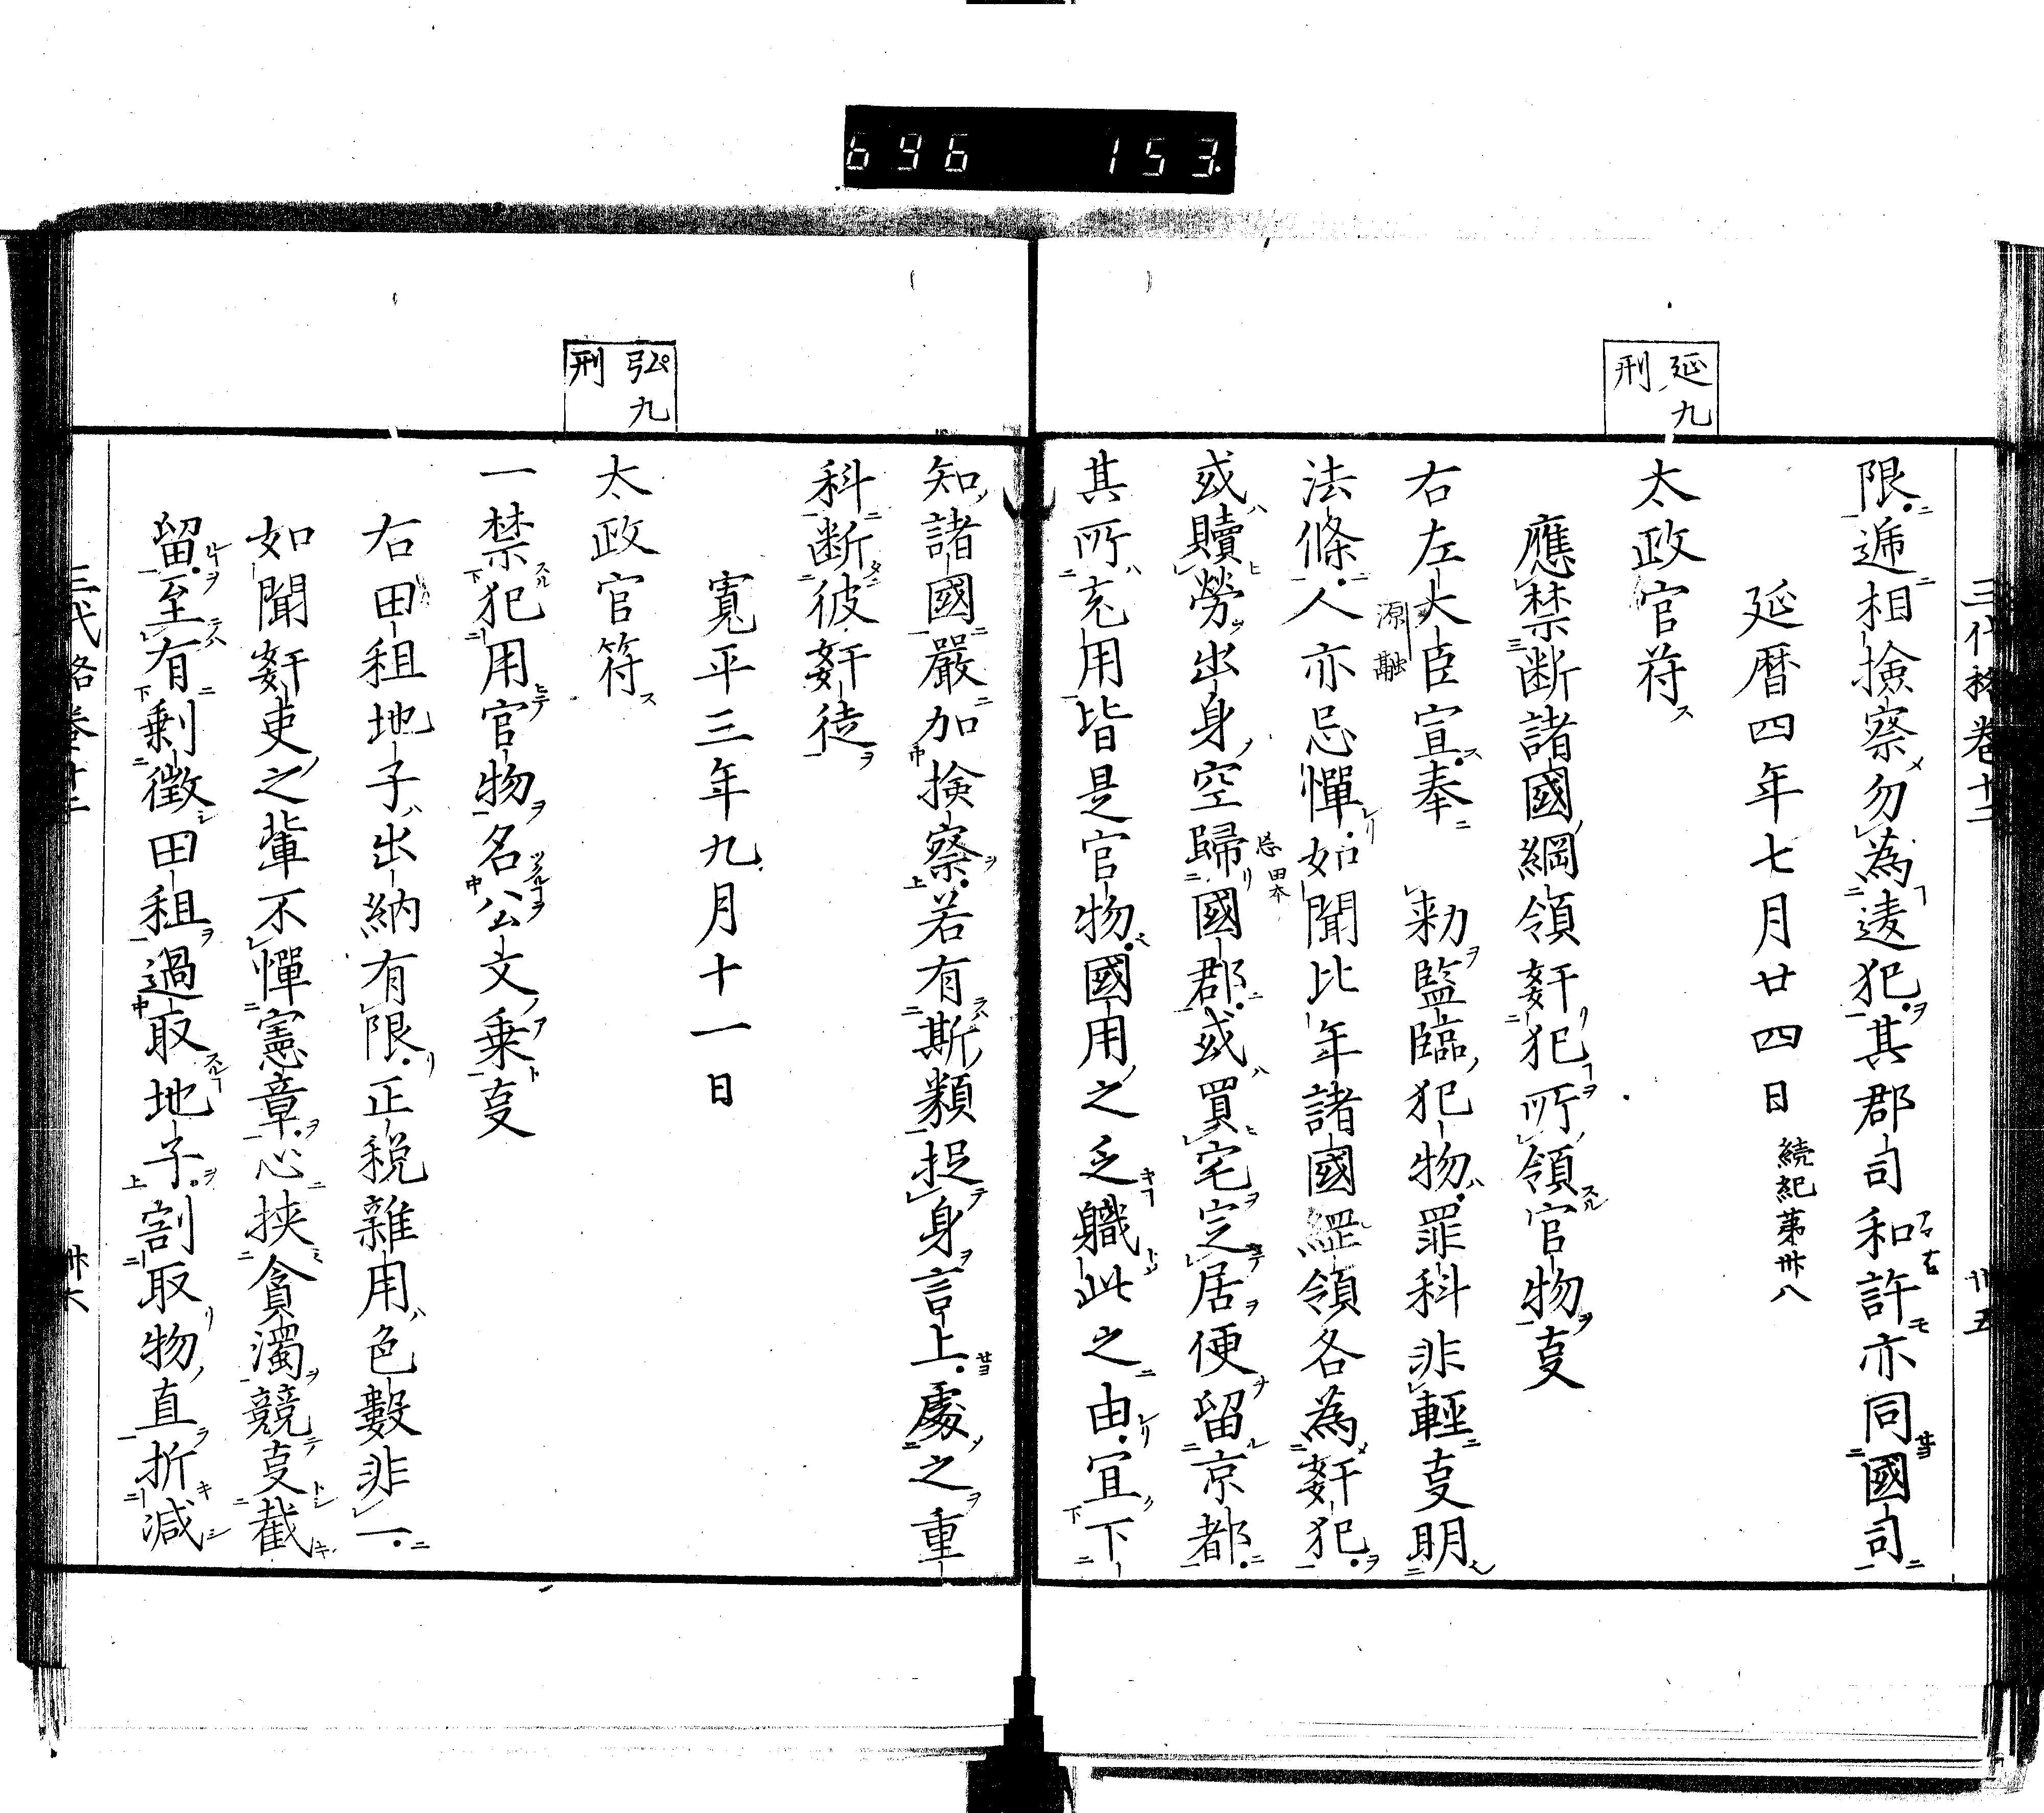 696 153
三代格卷十二 卅五
延九
刑
限遞相撿察勿為逺犯其郡司和許亦同國司
延暦四年七月廿四日 続紀第卅八
太政官符
應禁断諸國綱領姧犯所領官物叓
右左大臣宣奉 勅監臨犯物罪科非輕叓明
源融
法條人亦忌憚如聞比年諸國綱領各為姧犯
或贖勞出身空歸國郡或買宅定居便留京都
忘田本
其所充用皆是官物國用之乏軄此之由宜下
知諸國嚴加撿察若有斯類捉身言上處之重
科断彼姧徒
寛平三年九月十一日
弘九
刑
太政官符
一禁犯用官物名公文乗叓
右田租地子出納有限正税雜用色數非一
如聞姧吏之輩不憚憲章心挟貪濁競叓截
留至有剰徴田租過取地子割取物直折減
三代格卷十二 卅六